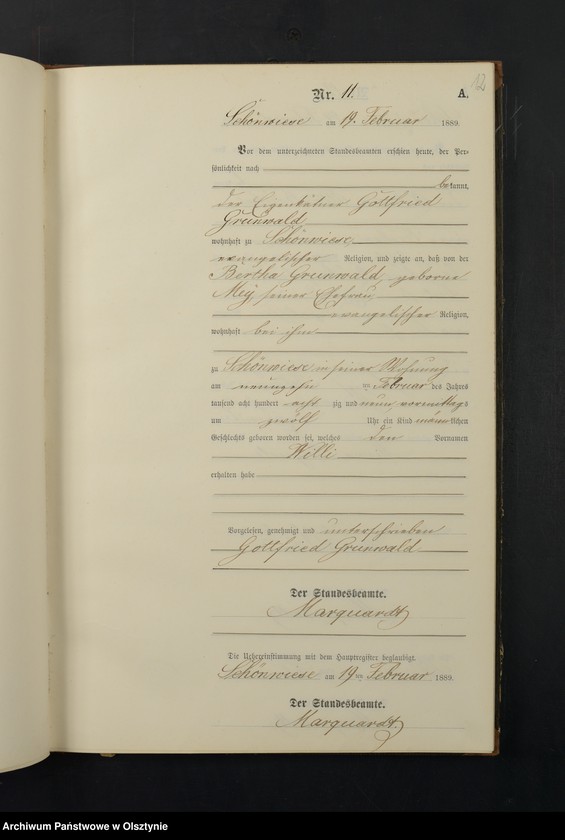 12
Nr. 11. A.
Schönwiese am 19. Februar 1889.
Vor dem unterzeichneten Standesbeamten erschien heute, der Per-
sönlichkeit nach
bekannt,
der Eigenkätner Gottfried
Grunwald
wohnhaft zu Schönwiese
evangelischer Religion, und zeigte an, daß von der
Bertha Grunwald, geborne
Mey, seiner Ehefrau,
evangelischer Religion,
wohnhaft bei ihm
zu Schönwiese in seiner Wohnung
am neunzehn ten Februar des Jahres
tausend acht hundert acht zig und neun, vormittags
um zwölf Uhr ein Kind männlichen
Geschlechts geboren worden sei, welches den Vornamen
Willi
erhalten habe
Vorgelesen, genehmigt und unterschrieben
Gottfried Grunwald
Der Standesbeamte.
Marquardt
Die Uebereinstimmung mit dem Hauptregister beglaubigt.
Schönwiese am 19ten Februar 1889.
Der Standesbeamte.
Marquardt.
Archiwum Państwowe w Olsztynie